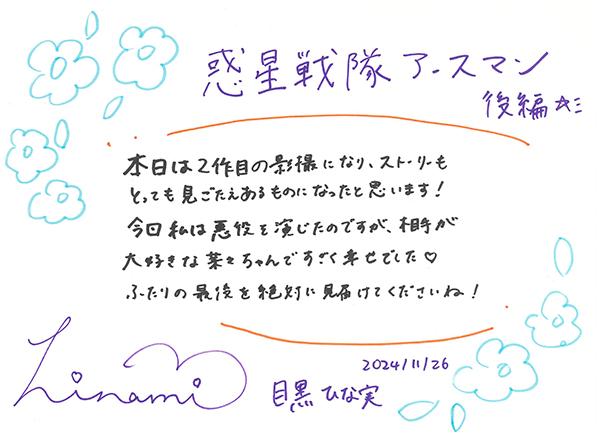 惑星戦隊アースマン
後編☆ミ
本日は2作目の影撮になり、ストーリーも
とっても見ごたえあるものになったと思います！
今回私は悪役を演じたのですが、相手が
大好きな菜々ちゃんですごく幸せでした♡
ふたりの最後を絶対に見届けてくださいね！
Hinami
2024/11/26
目黒ひな実